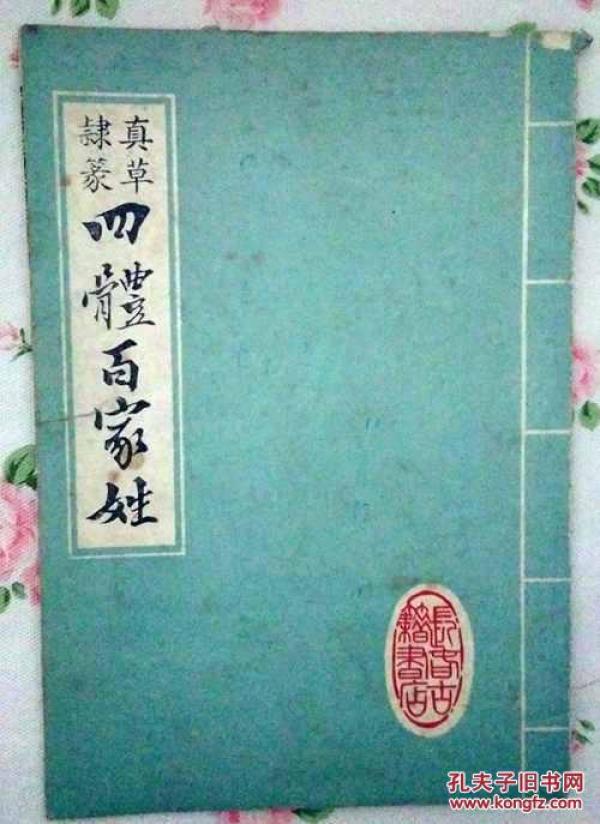 真草
隶篆
四體百家姓
長春古
籍書店
孔夫子旧书网
www.kongfz.com